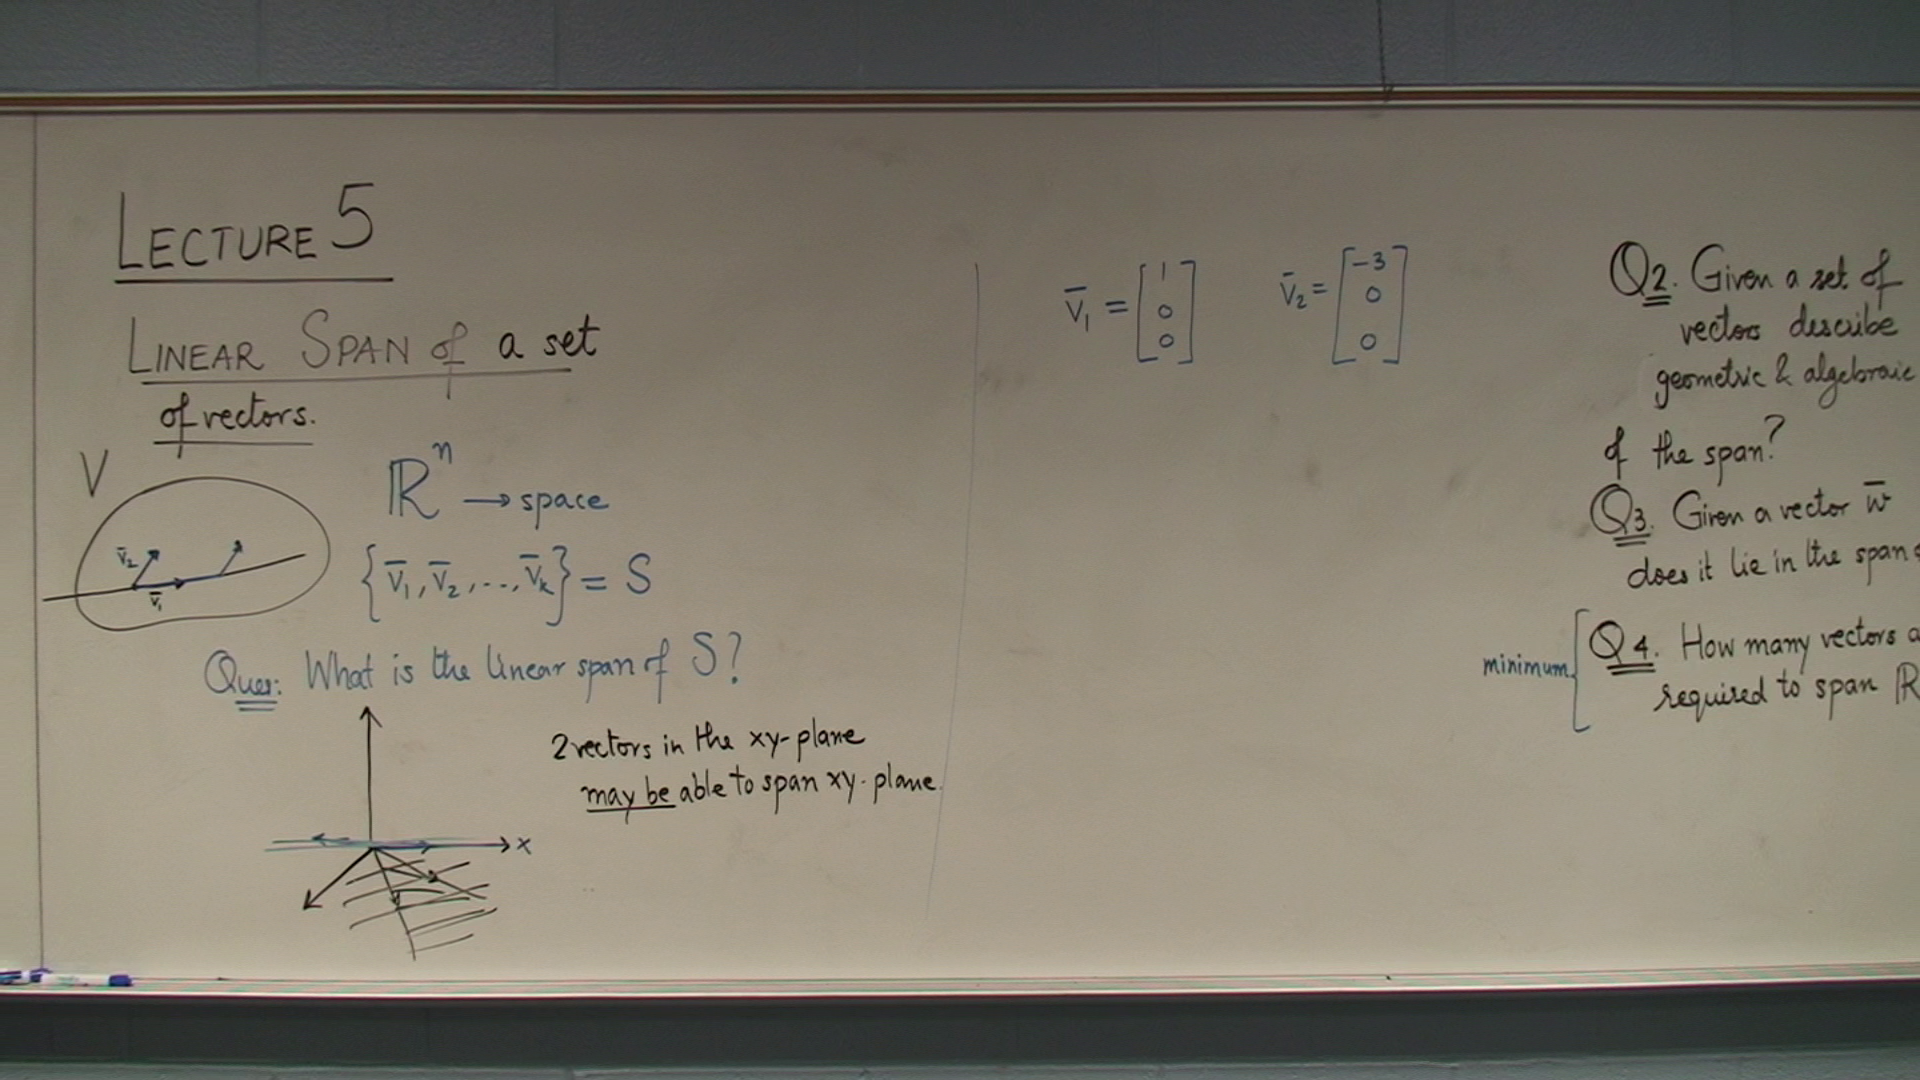 LECTURE 5
LINEAR SPAN of a set
of vectors.
V
ℝⁿ → space
v̄₂
v̄₁
{v̄₁, v̄₂, ..., v̄ₖ} = S
Ques: What is the linear span of S?
2 vectors in the xy-plane
may be able to span xy-plane.
x
v̄₁ = [1 0 0]
v̄₂ = [-3 0 0]
Q2. Given a set of
vectors describe
geometric & algebraic
of the span?
Q3. Given a vector w̄
does it lie in the span
minimum
Q4. How many vectors a
required to span ℝ